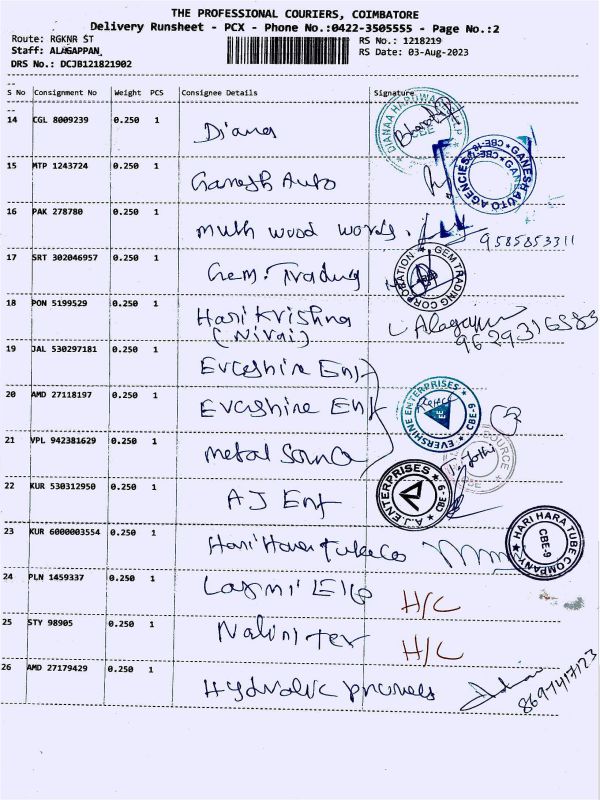 THE PROFESSIONAL COURIERS, COIMBATORE
Delivery Runsheet - PCX - Phone No.:0422-3505555 - Page No.:2
Route: RGKNR ST RS No.: 1218219
Staff: ALAGAPPAN RS Date: 03-Aug-2023
DRS No.: DCJB121821902
S No Consignment No Weight PCS Consignee Details Signature
14 CGL 8009239 0.250 1 Diana DIANAA HARDWA CBE
15 MTP 1243724 0.250 1 Ganesh Auto GANESH AUTO AGENCIES CBE
16 PAK 278780 0.250 1 muth wood works. 9585853311
17 SRT 302046957 0.250 1 Gem. Trading GEM TRADING CORPORATION
18 PON 5199529 0.250 1 Hari Krishna Alagappan
(Nivai) 9629316583
19 JAL 530297181 0.250 1 Evershine Ent
20 AMD 27118197 0.250 1 Evershine Ent EVERSHINE ENTERPRISES CBE-9 EE
21 VPL 942381629 0.250 1 Metal Source SOURCE
22 KUR 530312950 0.250 1 AJ Ent A.J.ENTERPRISES CBE-9
23 KUR 6000003554 0.250 1 Hari Hara Tube Co HARI HARA TUBE COMPANY CBE-9
24 PLN 1459337 0.250 1 Laxmi Ele H/C
25 STY 98905 0.250 1 H/C
26 AMD 27179429 0.250 1 Hydralic 8697417123